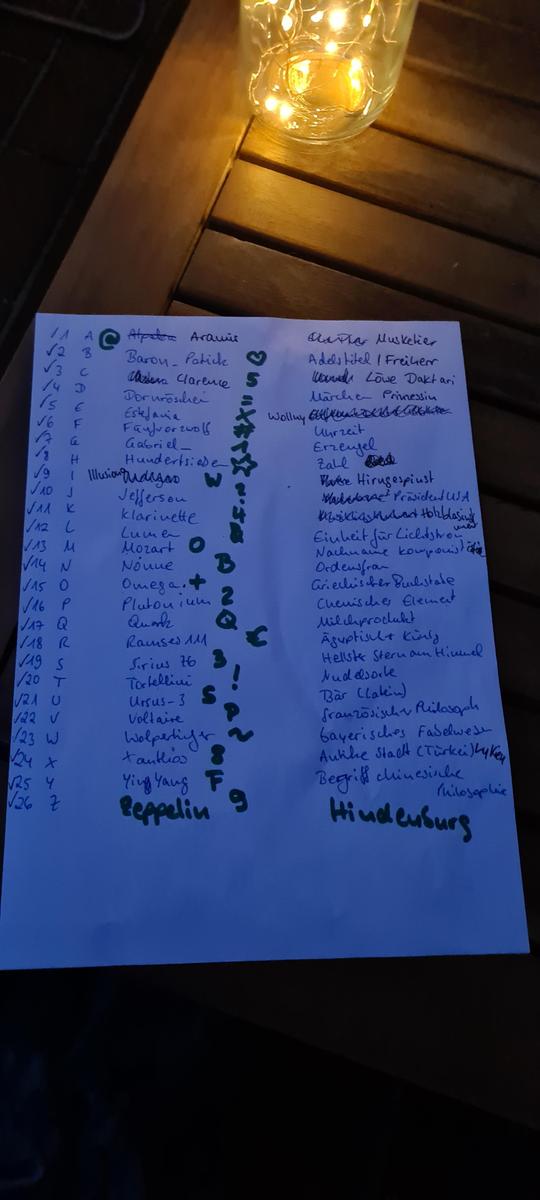 √1 A @ Aramis Musketier
√2 B Baron-Patick ♡ Adelstitel / Freiherr
√3 C Clarence 5 Löwe Daktari
√4 D Dornröschen = Märchen Prinzessin
√5 E Estefania X Wollny
√6 F Fünfvorzwölf # Uhrzeit
√7 G Gabriel- 1 Erzengel
√8 H Hundertsieben ☆ Zahl
√9 I Illusion W Hirngespinst
√10 J Jefferson ? Präsident USA
√11 K Klarinette 4 Holzblasinstrument
√12 L Lumen Einheit für Lichtstrom
√13 M Mozart O Nachname Komponist
√14 N Nonne B Ordensfrau
√15 O Omega. + Griechischer Buchstabe
√16 P Plutonium 2 Chemisches Element
√17 Q Quark Q Milchprodukt
√18 R Ramses 111 € Ägyptischer König
√19 S Sirius 76 3 Hellste Stern am Himmel
√20 T Tortellini ! Nudelsorte
√21 U Ursus-3 S Bär (Latein)
√22 V Voltaire P französischer Philosoph
√23 W Wolpertinger ~ bayerisches Fabelwesen
√24 X Xanthios 8 Antike Stadt (Türkei) Lykien
√25 Y Ying Yang F Begriff chinesische Philosophie
√26 Z Zeppelin 9 Hindenburg